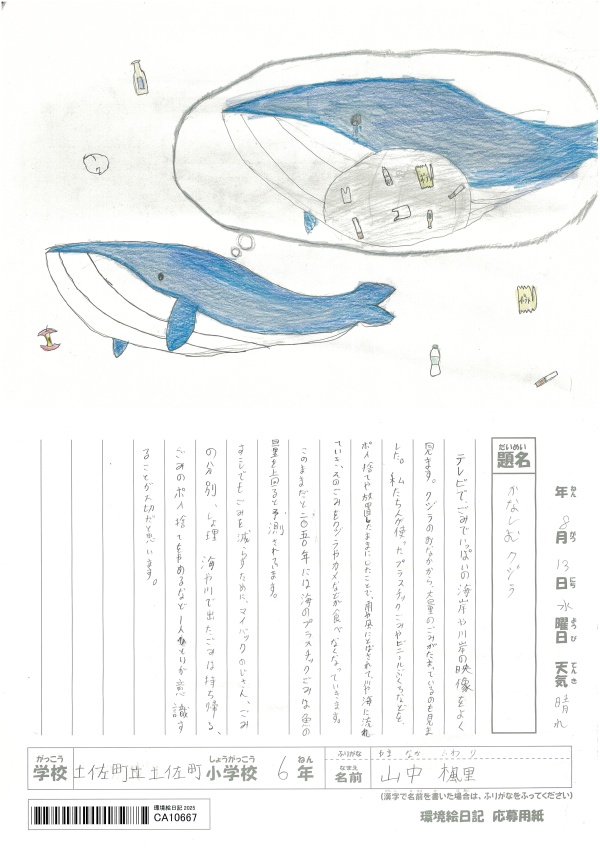 ポテト
年 8月 13日 水曜日 天気 晴れ
ねん がつ にち ようび てんき
だいめい
題名
かなしむクジラ
テレビでごみでいっぱいの海岸や川岸の映像をよく
見ます。クジラのおなかから、大量のごみがたまっているのも見ま
した。私たちが使ったプラスチックごみやビニールぶくろなどを、
ポイ捨てや放置したままにしたことで、雨や風にとばされて、川や海に流れ
ていき、そのごみをクジラやカメなどが食べなくなっていきます。
このままだと二〇五〇年には海のプラスチックごみは魚の
量を上回ると予測されています。
すこしでもごみを減らすために、マイバックのじさん、ごみ
の分別、しょ理、海や川で出たごみは持ち帰る、
ごみのポイ捨てをやめるなど一人ひとりが意識す
ることが大切だと思います。
がっこう しょうがっこう ねん
学校 土佐町立土佐町小学校 6年
ふりがな やま なか ふわり
なまえ
名前 山中 楓里
(漢字で名前を書いた場合は、ふりがなをふってください)
環境絵日記 2025
CA10667
環境絵日記 応募用紙